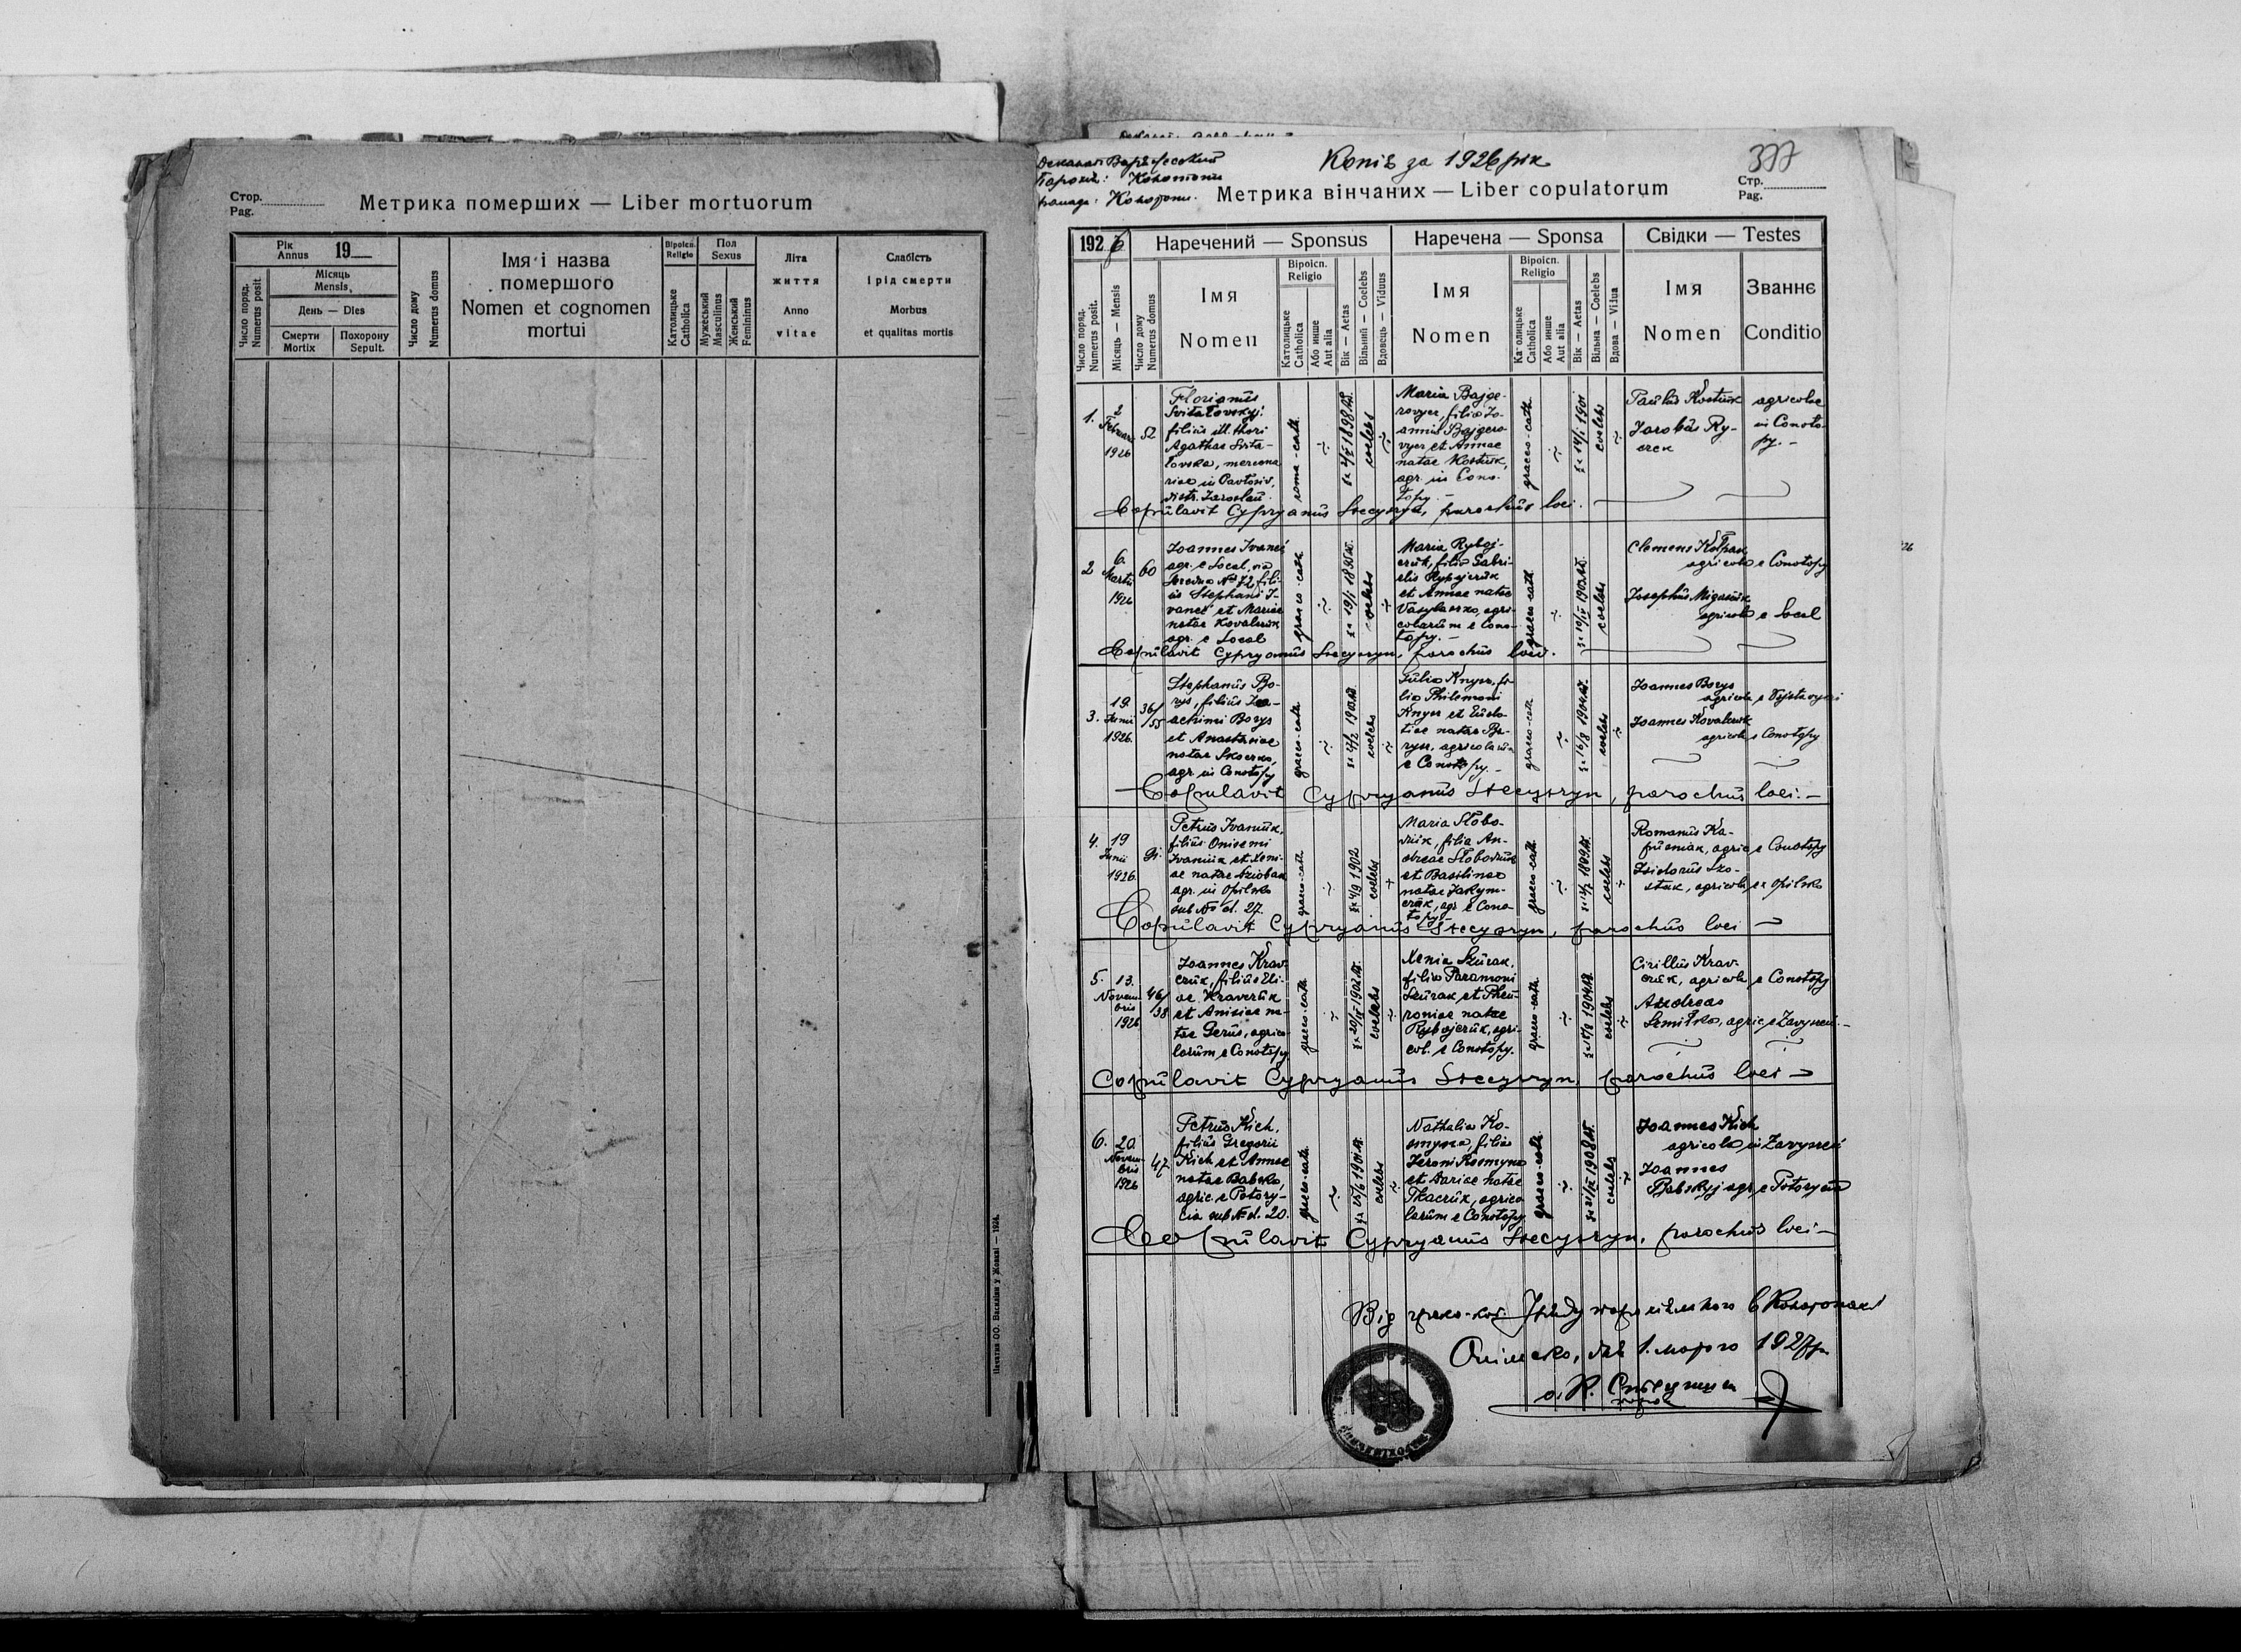 Стор.
Pag.
Метрика померших — Liber mortuorum
Рік
Annus 19
Місяць
Mensis
День — Dies
Число поряд.
Numerus posit.
Смерти
Mortix
Похорону
Sepult.
Число дому
Numerus domus
Імя і назва
помершого
Nomen et cognomen
mortui
Віроісп.
Religio
Католицьке
Catholica
Пол
Sexus
Мужеський
Masculinus
Женський
Femininus
Літа
життя
Anno
vitae
Слабість
і рід смерти
Morbus
et qualitas mortis
Печатня ОО. Василіян у Жовкві — 1924.
Копія за 1926 рік
377
Метрика вінчаних — Liber copulatorum
Стр.
Pag.
1926
Наречений — Sponsus
Наречена — Sponsa
Свідки — Testes
Число поряд.
Numerus posit.
Місяць — Mensis
Число дому
Numerus domus
Імя
Nomen
Віроісп.
Religio
Католицьке
Catholica
Або инше
Aut alia
Вік — Aetas
Вільний — Coelebs
Вдовець — Viduus
Імя
Nomen
Віроісп.
Religio
Католицьке
Catholica
Або инше
Aut alia
Вік — Aetas
Вільна — Coelebs
Вдова — Vidua
Імя
Nomen
Званнє
Conditio
1.
2
Februari
1926
52
Florianus
Svitalovskyj
filius ill. thori
Agathae Svita-
lovska,
distr. Jaroslau
roma-cath.
1898
coelebs
Maria Bajge-
rovycz, filia Jo-
annis Bajgero-
vycz et Annae
natae Kostiuk,
agr. in Cono-
topy.
graeco-cath.
14/I 1901
coelebs
Paulus Kostiuk
agricolae
in Conoto-
py.
Copulavit Cypryanus Stecyszyn, parochus loci.
2
6.
Martii
1926
60
Joannes Ivaneć
agr. e Socal, via
No 72, fili-
us Stephani I-
vaneć et Mariae
natae Kovalczuk
agr. e Socal
graeco-cath
coelebs
Maria Ryboj-
czuk, filia Gabri-
elis Rybojczuk
et Annae natae
agri-
colarum e Cono-
topy.
graeco-cath
coelebs
Clemens Kolpak
agricola e Conotopy
Josephus
agricola e Socal
Copulavit Cypryanus Stecyszyn, parochus loci.
3.
19
Junii
1926.
36/
55
Stephanus Bo-
rys, filius Joa-
achimi Borys
et Anastasiae
natae
agr. in Conotopy
graeco-cath
coelebs
Julia Knysz, fi-
lia Philemoni
Knysz et Eudo-
tiae natae Bo-
rys, agricolarum
e Conotopy.
graeco-cath
16/8 1904
coelebs
Joannes Borys
agricola e
Joannes Kovalczuk
agricola e Conotopy
Copulavit Cypryanus Stecyszyn, parochus loci.
4.
19
Junii
1926.
91.
Petrus Ivaniuk,
filius Onisemi
Ivaniuk et Xeni-
ae natae Dziobak
agr. in Opilsko
sub No d. 27.
graeco-cath
4/9 1902
coelebs
Maria Slobo-
diuk, filia An-
dreae Slobodiuk
et Basilinae
natae Jakym-
czuk, agr. e Cono-
topy.
graeco-cath.
coelebs
Romanus Ka-
agric. e Conotopy
Isidorus Szo-
stak, agricola ex Opilsko
Copulavit Cypryanus Stecyszyn, parochus loci
5.
13.
Novem-
bris
1926
46/
38
Joannes Krav-
czuk, filius Eli-
ae Kravczuk
et Anisiae na-
tae Gerus, agrico-
larum e Conotopy
graeco-cath
coelebs
Xenia Szurak,
filia Paramoni
Szurak et Pheu-
roniae natae
Rybojczuk, agri-
col. e Conotopy.
graeco-cath.
coelebs
Cirillus Krav-
czuk, agricola e Conotopy
Andreas
agric. e
Copulavit Cypryanus Stecyszyn, parochus loci
6.
20
Novem-
bris
1926
47
Petrus Kich,
filius Gregorii
Kich et Annae
natae Babska,
agric. e Potory-
cia sub No d. 20.
graeco-cath
coelebs
Nathalia Ko-
smyna, filia
Jeroni Kosmyna
et Dariae natae
Tkaczuk, agrico
larum e Conotopy
graeco-cath.
coelebs
Joannes Kich
agricola in
Joannes
Babskyj agr. e Potorycia
Copulavit Cypryanus Stecyszyn, parochus loci
Від греко-кат. Уряду парохіяльного в Конотопах
Опільско, дня 1. марта 1927 р.
о. К. Стецишин
парох